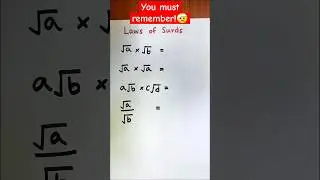 You must
remember!🥺
Laws of Surds
√a × √b =
√a × √a =
a√b × c√d =
√a/√b =